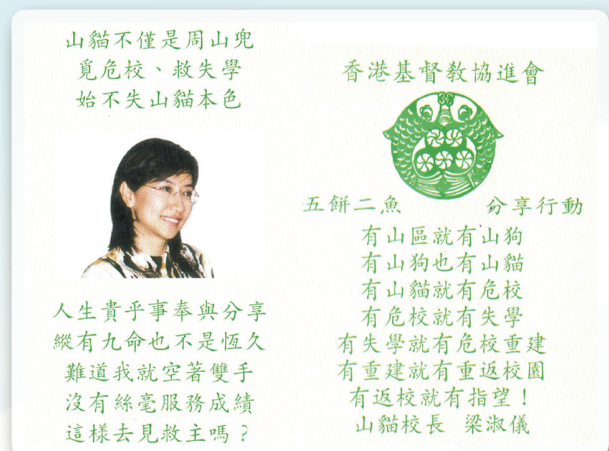 山貓不僅是周山兜
覓危校、救失學
始不失山貓本色
人生貴乎事奉與分享
縱有九命也不是恆久
難道我就空著雙手
沒有絲毫服務成績
這樣去見救主嗎?
香港基督教協進會
五餅二魚 分享行動
有山區就有山狗
有山狗也有山貓
有山貓就有危校
有危校就有失學
有失學就有危校重建
有重建就有重返校園
有返校就有指望!
山貓校長 梁淑儀